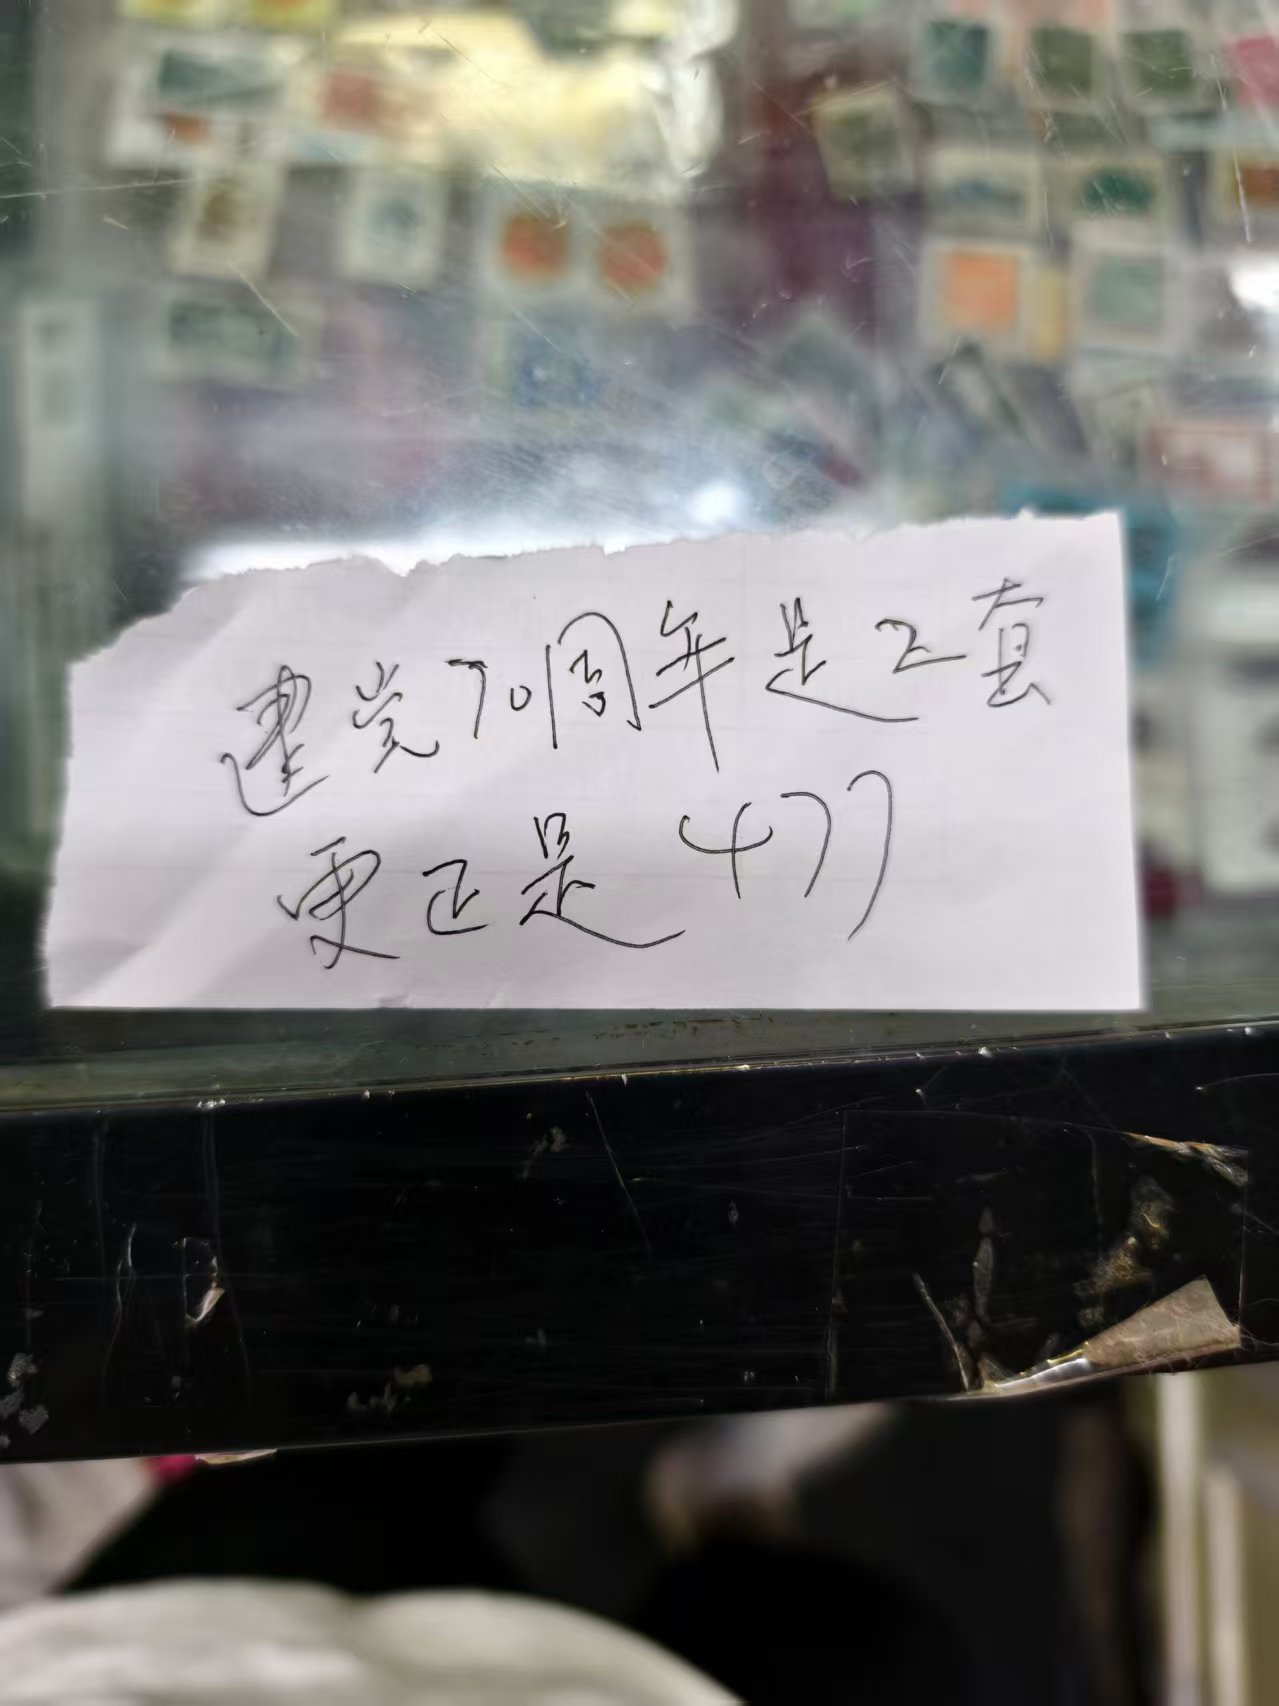 建党70周年是2套
更正是477